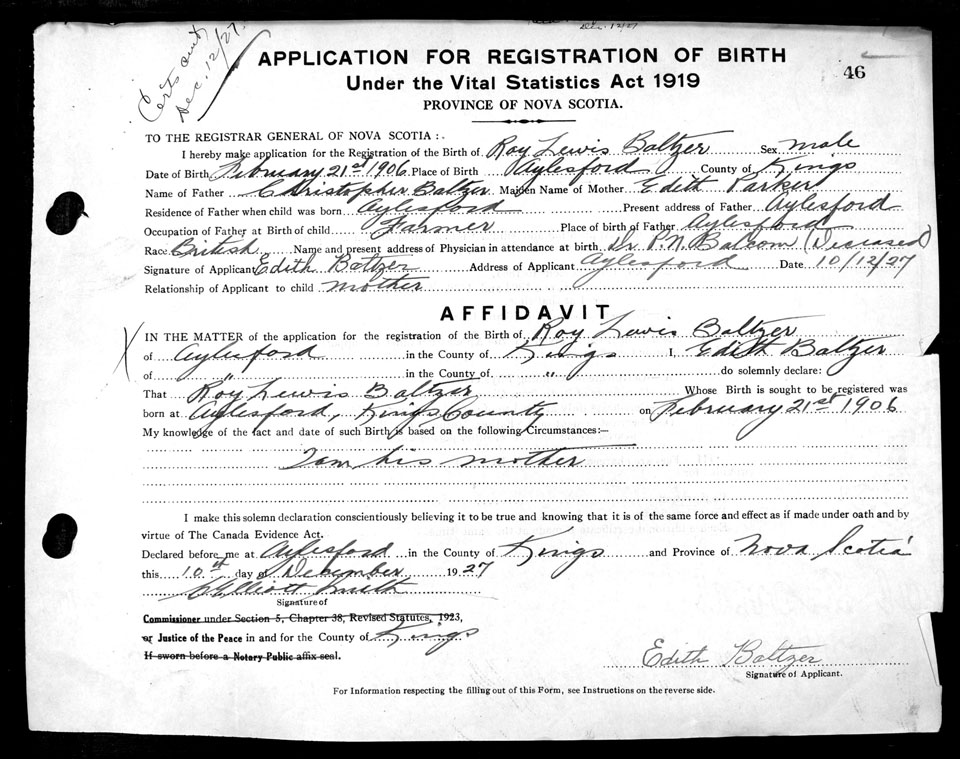 Dec. 12/27
Certs cut
Dec. 12/27.
APPLICATION FOR REGISTRATION OF BIRTH
46
Under the Vital Statistics Act 1919
PROVINCE OF NOVA SCOTIA.
TO THE REGISTRAR GENERAL OF NOVA SCOTIA:
I hereby make application for the Registration of the Birth of Roy Lewis Baltzer Sex male
Date of Birth February 21st 1906 Place of Birth Aylesford County of Kings
Name of Father Christopher Baltzer Maiden Name of Mother Edith Parker
Residence of Father when child was born Aylesford Present address of Father Aylesford
Occupation of Father at Birth of child Farmer Place of birth of Father Aylesford
Race British Name and present address of Physician in attendance at birth Dr P.N. Balcom (Deceased)
Signature of Applicant Edith Baltzer Address of Applicant Aylesford Date 10/12/27
Relationship of Applicant to child mother
AFFIDAVIT
IN THE MATTER of the application for the registration of the Birth of Roy Lewis Baltzer
of Aylesford in the County of Kings I, Edith Baltzer
of " in the County of " do solemnly declare:
That Roy Lewis Baltzer Whose Birth is sought to be registered was
born at Aylesford, Kings County on February 21st 1906
My knowledge of the fact and date of such Birth is based on the following Circumstances:—
I am his mother
I make this solemn declaration conscientiously believing it to be true and knowing that it is of the same force and effect as if made under oath and by
virtue of The Canada Evidence Act.
Declared before me at Aylesford in the County of Kings and Province of Nova Scotia
this 10th day of December 1927
Elliott Smith
Signature of
Commissioner under Section 5, Chapter 38, Revised Statutes, 1923,
or Justice of the Peace in and for the County of Kings
If sworn before a Notary Public affix seal.
Edith Baltzer
Signature of Applicant.
For Information respecting the filling out of this Form, see Instructions on the reverse side.